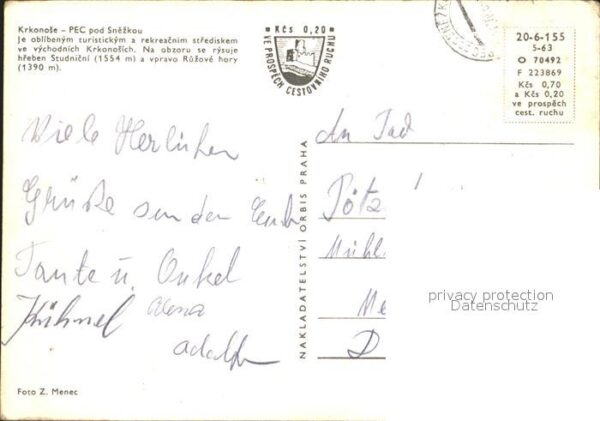 Krkonoše – PEC pod Sněžkou
Je oblíbeným turistickým a rekreačním střediskem
ve východních Krkonoších. Na obzoru se rýsuje
hřeben Studniční (1554 m) a vpravo Růžové hory
(1390 m).
Kčs 0,20
VE PROSPĚCH CESTOVNÍHO RUCHU
20-6-155
5-63
O 70492
F 223869
Kčs 0,70
a Kčs 0,20
ve prospěch
cest. ruchu
Viele Herlichen
Grüße senden Euch
Tante u. Onkel
Kühnel Alena
Adolf
NAKLADATELSTVÍ ORBIS PRAHA
An Fad
Pötz
Mühl.
Me
D
privacy protection
Datenschutz
Foto Z. Menec